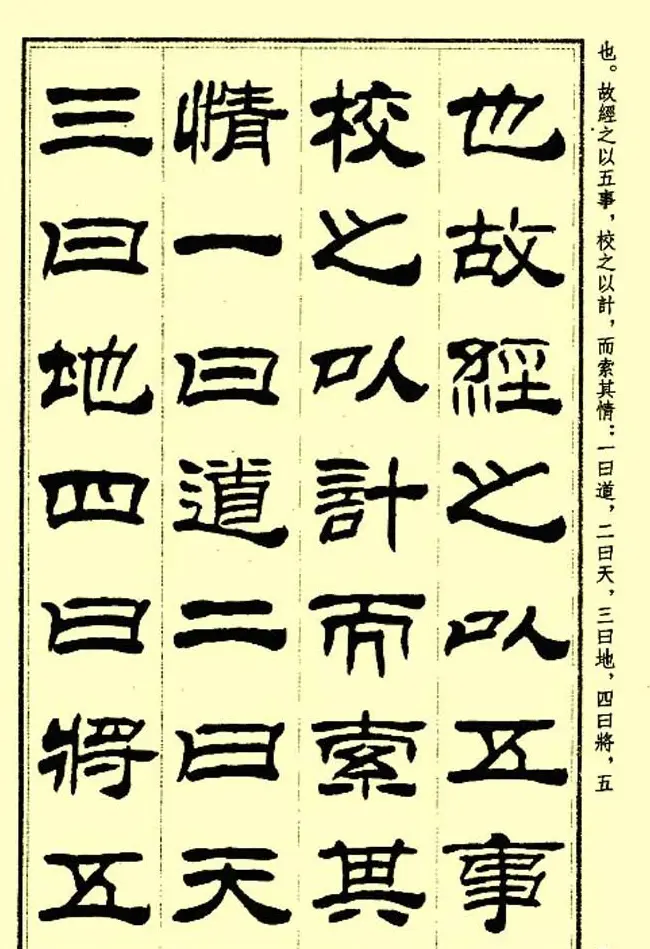 也。故經之以五事，校之以計，而索其情：一曰道，二曰天，三曰地，四曰將，五
也故經之以五事
校之以計而索其
情一曰道二曰天
三曰地四曰將五